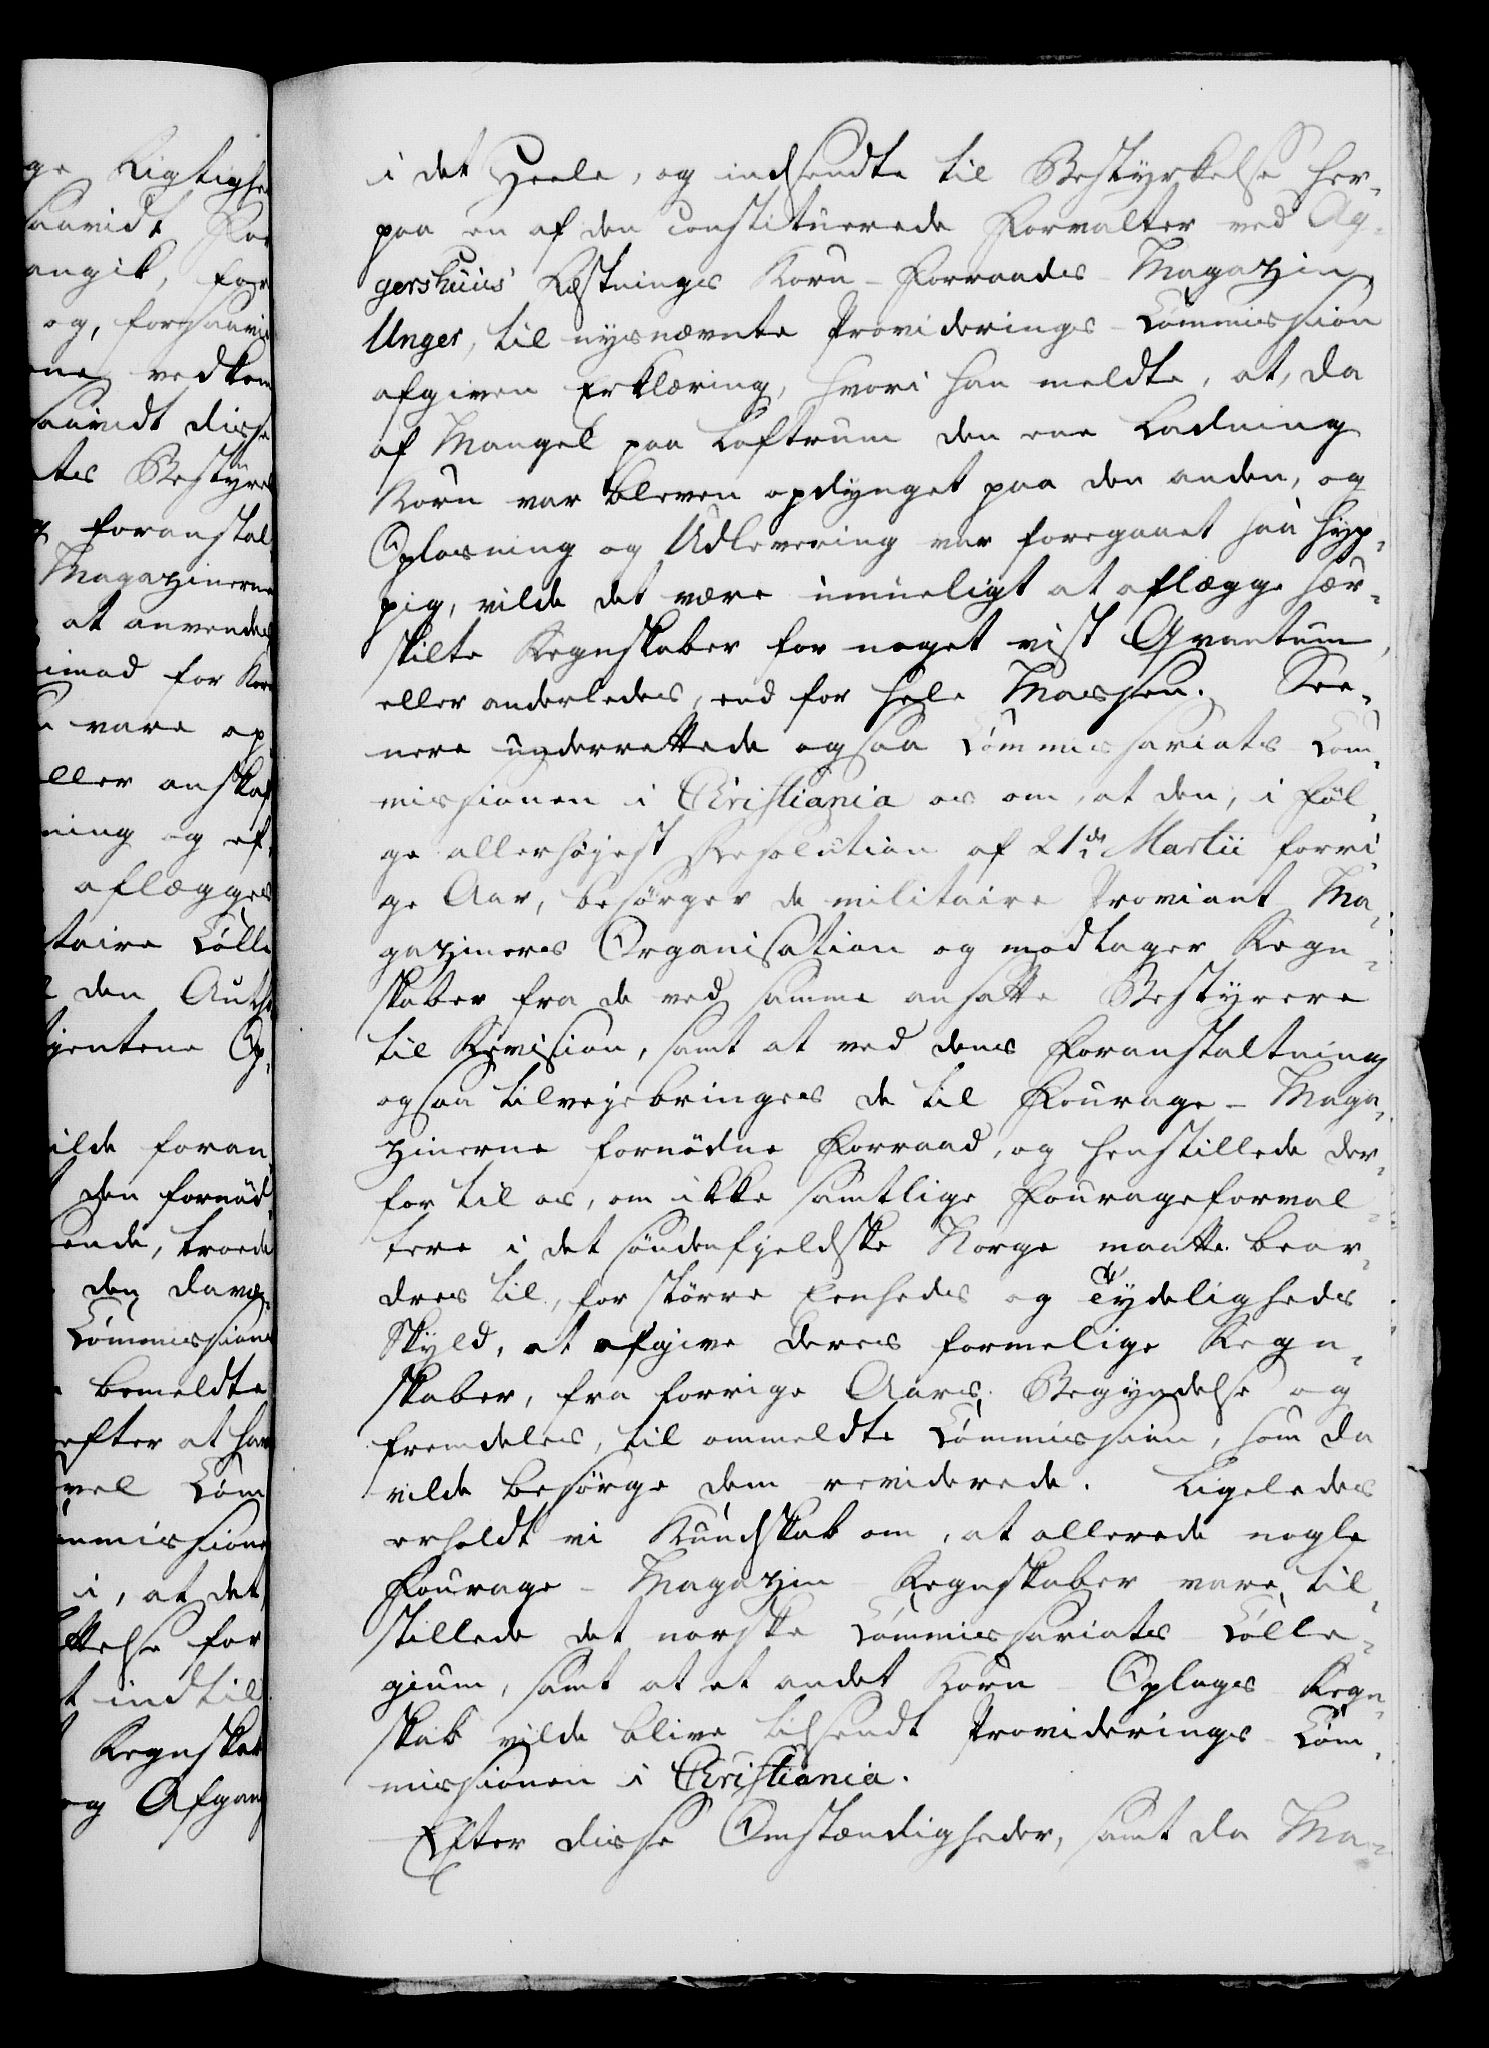 ge Rigtighe
saavidt For
angik, for
og, forsaavi
ne vedkom
saavidt disse
tes Bestyre
foranstal
Magazinerne
at anvendes
imod for Kor
vare op
eller anskaf
ning og ef
aflægges
taire Colle
den Autho
gentene Op
ilde foran
den fornød
ende, troede
den davæ
Commissions
bemeldte
efter at hav
vel Com
mmissione
i, at det
ttelse for
t indtil
Regnskab
og Afgang
i det Heele, og indsendte til Bestyrkelse her-
paa en af den constituerede Forvalter ved Ag-
gershuus Fæstnings Korn-Forraads-Magazin
Unger, til nysnævnte Providerings-Commission
afgiven Erklæring, hvori han meldte, at, da
af Mangel paa Loftrum den ene Ladning
Korn var bleven opdynget paa den anden, og
Oplosning og Udlevering var foregaaet saa hyp-
pig, vilde det være umueligt at aflægge sær-
skilte Regnskaber for noget vist Qvantum,
eller anderledes, end for hele Massen. See-
nere underrettede ogsaa Commissariats-Com-
missionen i Christiania os om, at den, i Føl-
ge allerhøjest Resolution af 21de Martii forri-
ge Aar, besørger de militaire Proviant-Ma-
gaziners Organisation og modtager Regn-
skaber fra de ved samme ansatte Bestyrere
til Revision, samt at ved dens Foranstaltning
ogsaa tilvejebringes de til Fourage-Maga-
zinerne fornødne Forraad, og henstillede der-
for til os, om ikke samtlige Fourageforval-
tere i det søndenfjeldske Norge maatte beor-
dres til, for større Eenheds og Tydeligheds
Skyld, at afgive deres formelige Regn-
skaber, fra forrige Aars Begyndelse og
fremdeles, til ommeldte Commission, som da
vilde besørge dem reviderede. Ligeledes
erholdt vi Kundskab om, at allerede nogle
Fourage-Magazin Regnskaber vare til-
stillede det norske Commissariats-Colle-
gium, samt at et andet Korn-Oplags Regn-
skab vilde blive tilsendt Providerings-Com-
missionen i Christiania.
Efter disse Omstændigheder, samt da Ma-